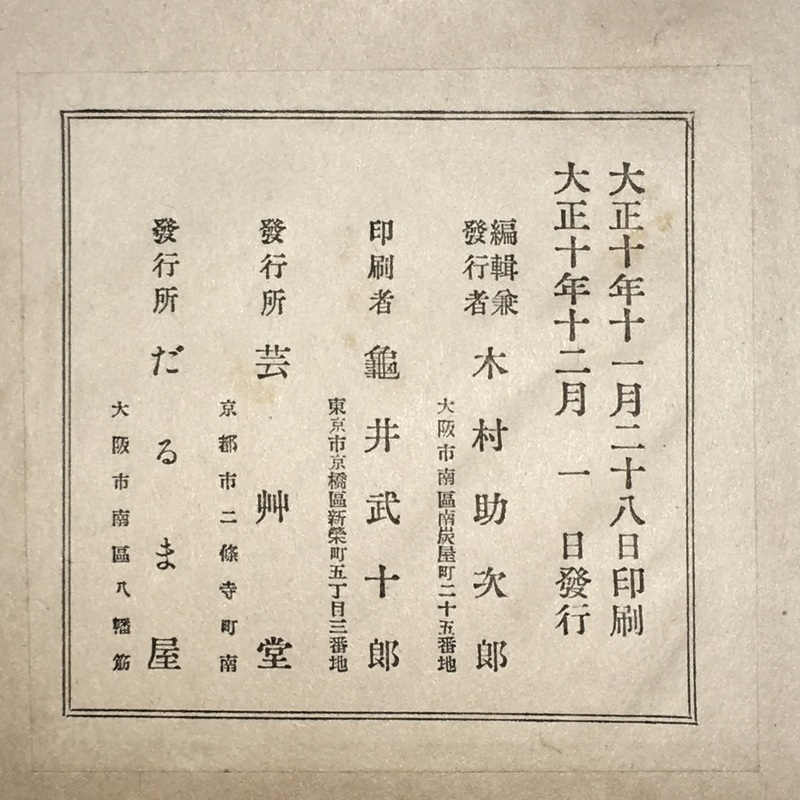 大正十年十一月二十八日印刷
大正十年十二月一日發行
編輯兼
發行者
木村助次郎
大阪市南區南炭屋町二十五番地
印刷者
龜井武十郎
東京市京橋區新榮町五丁目三番地
發行所
芸艸堂
京都市二條寺町南
發行所
だるま屋
大阪市南區八幡筋